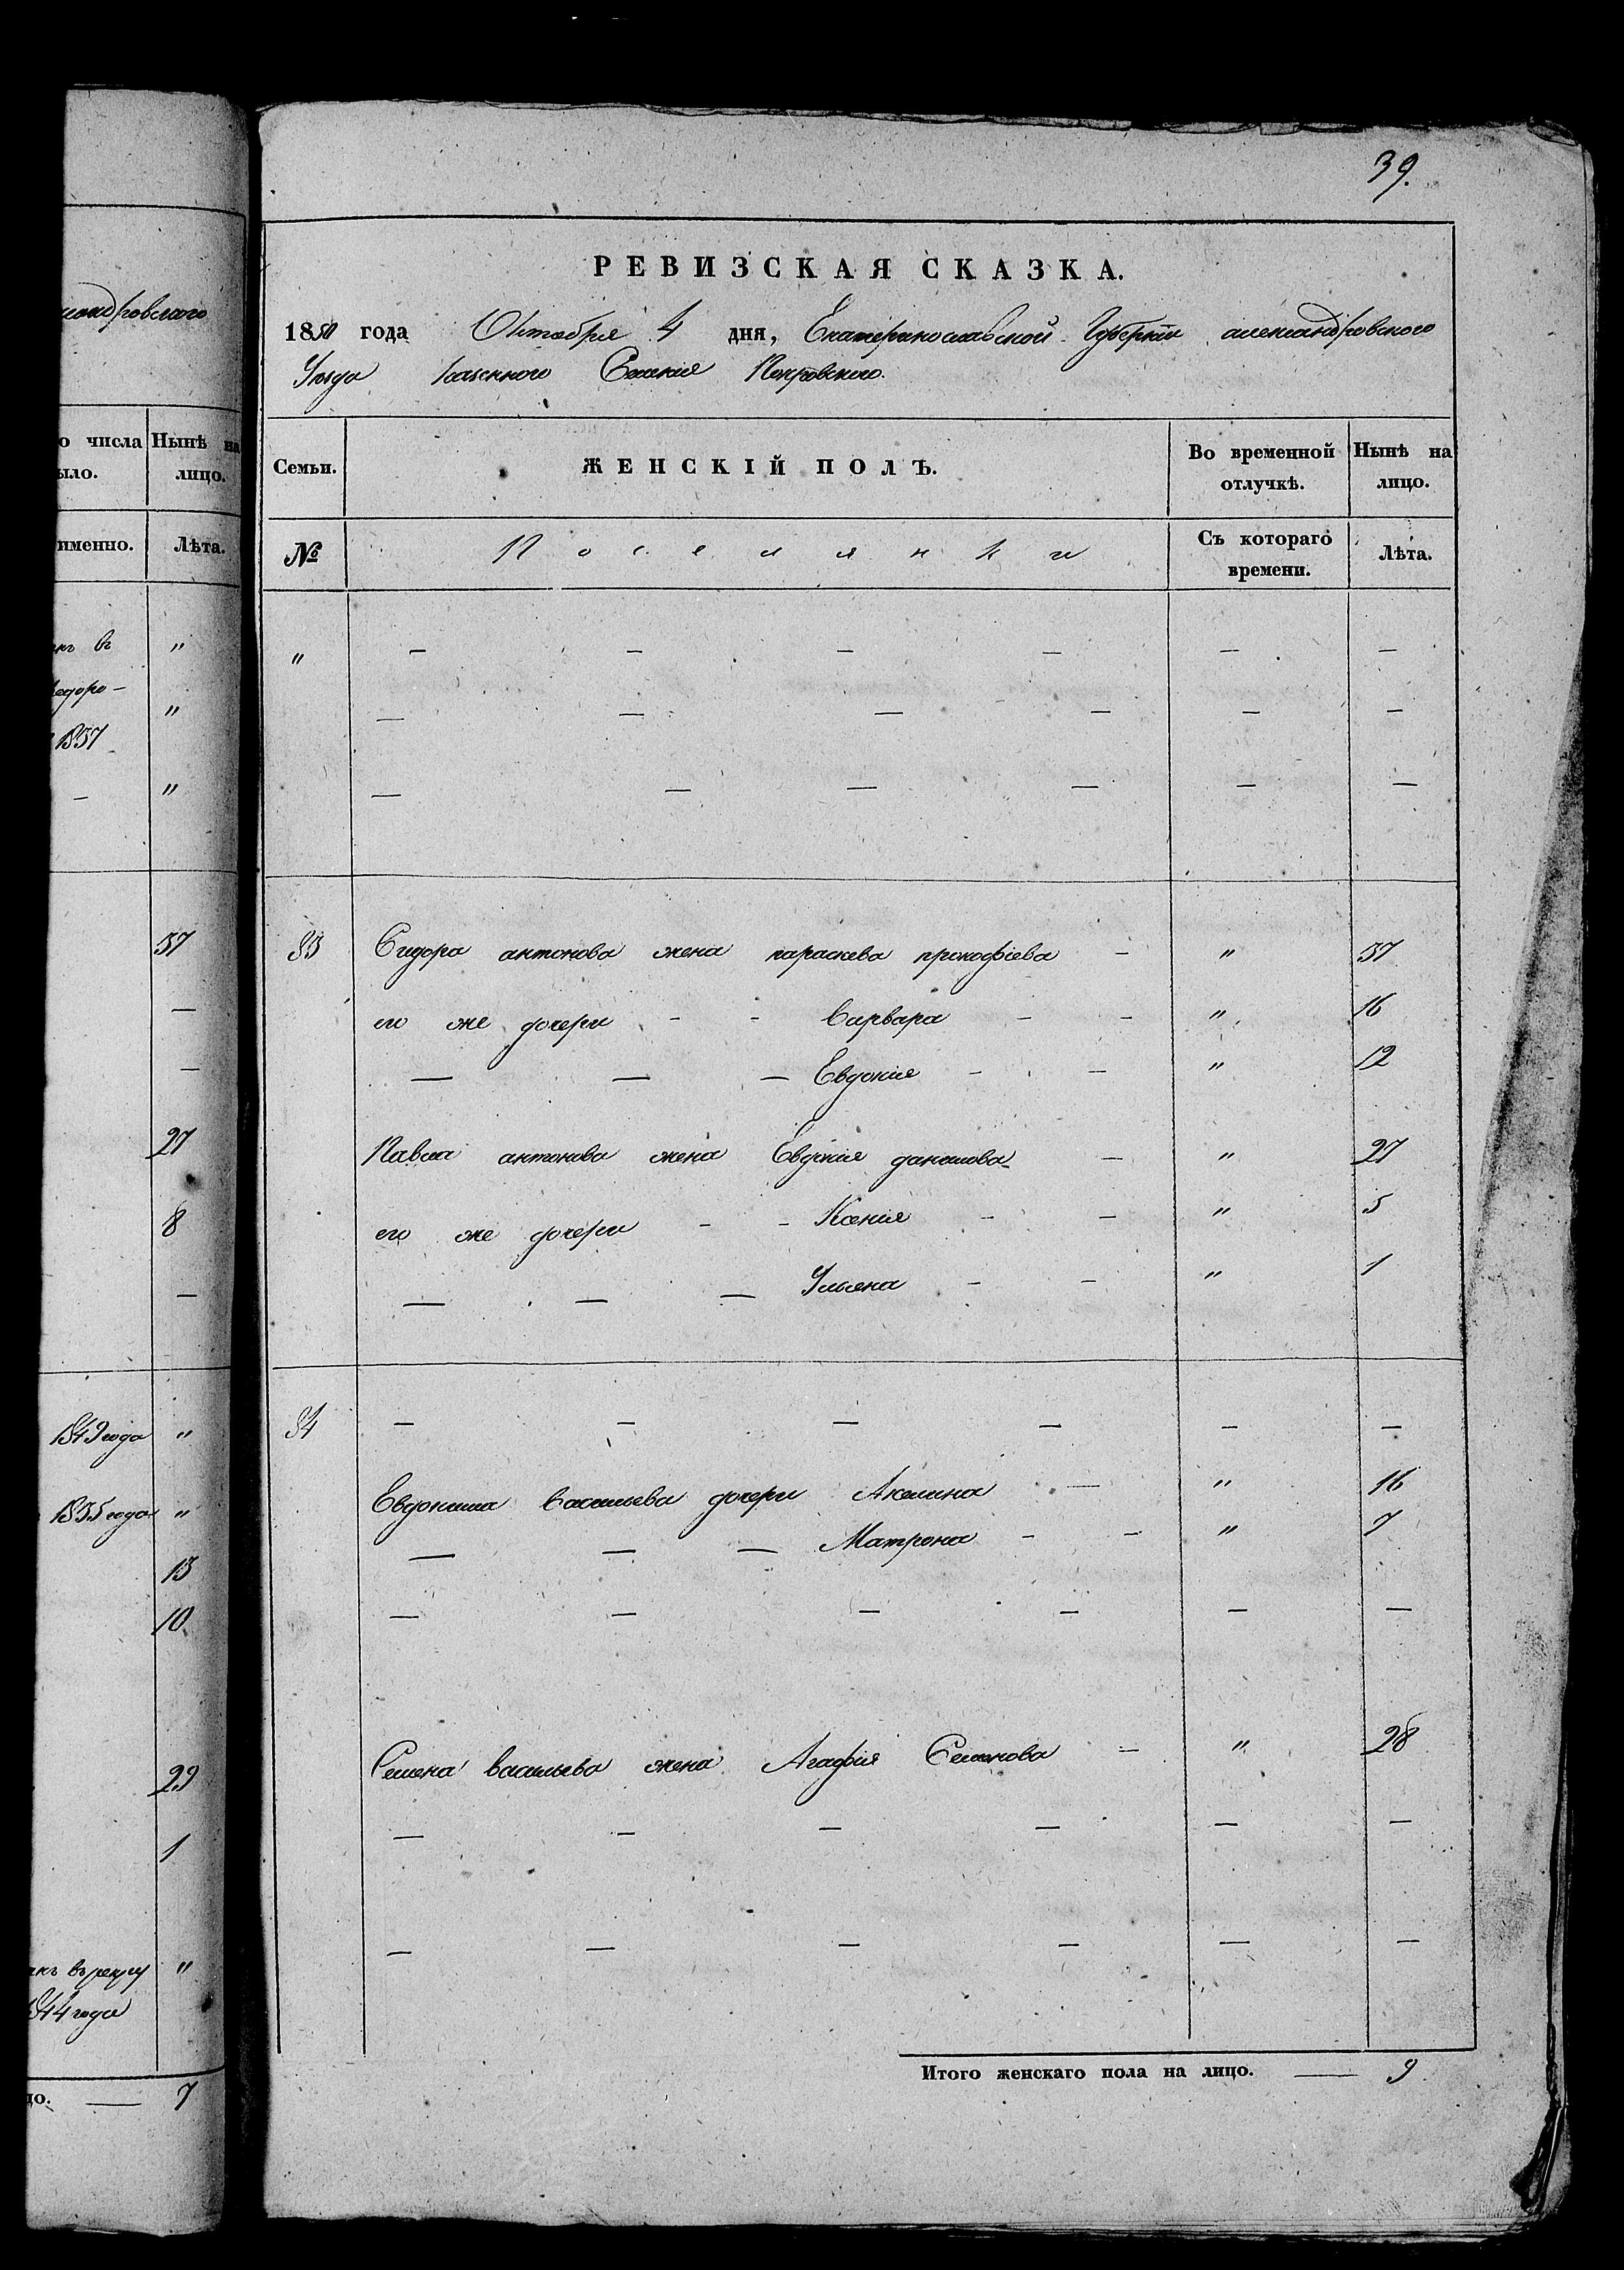 39.
РЕВИЗСКАЯ СКАЗКА.
1850 года Октября 4 дня, Екатеринославской Губернiи александровского
Уезда Казенного Селения Покровского.
Семьи. ЖЕНСКІЙ ПОЛЪ. Во временной отлучкѣ. Нынѣ на лицо.
№ Поселянки Съ котораго времени. Лѣта.
" — — — — — —
— — — — — —
— — — — — —
83 Сидора антонова жена параскева прокофiева — " 37
его же дочери - - Варвара - - " 16
— — — Евдокiя - - " 12
Павла антонова жена Евдокiя данилова — " 27
его же дочери - - Ксенiя - - " 5
— — — Ульяна - - " 1
84 — — — — — —
Евдокима васильева дочери Акилина — " 16
— — — Матрона - - " 7
— — — — — —
Семена васильева жена Агафiя Семенова — " 28
— — — — — —
— — — — — —
Итого женскаго пола на лицо. — 9
андровского
о числа
ыло.
Нынѣ на
лицо.
именно.
Лѣта.
въ "
едоро- "
1837
- "
37
—
—
27
8
—
1849 года "
1835 года "
13
10
29
1
въ рекру "
1844 года
цо. — 7